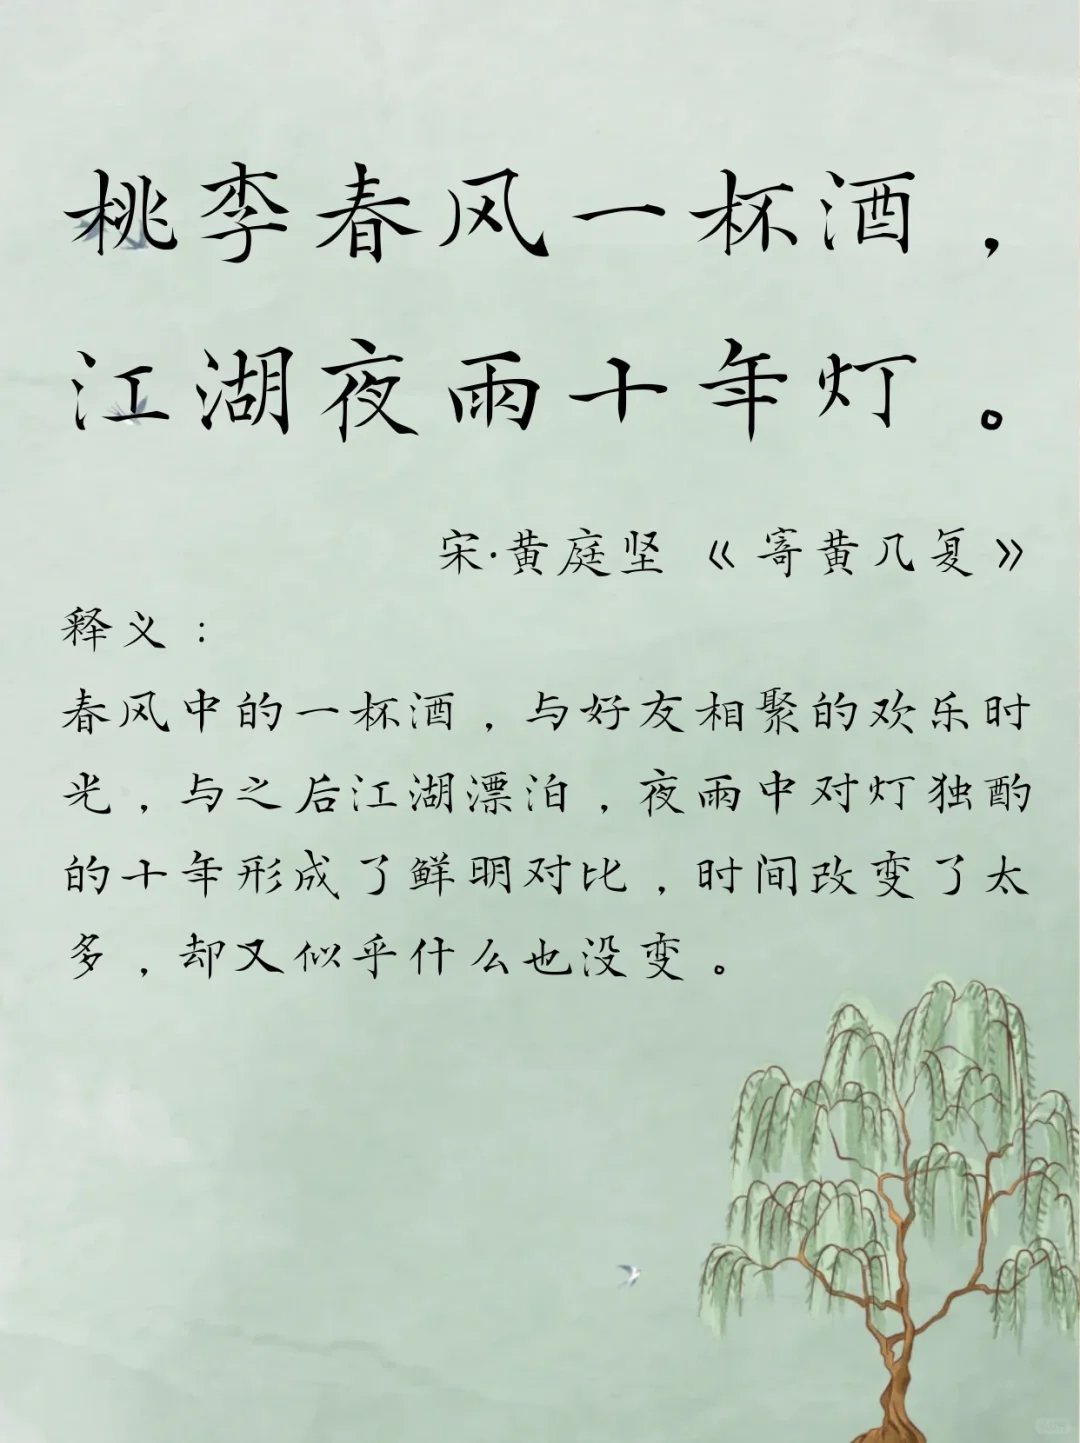 桃李春风一杯酒，
江湖夜雨十年灯。
宋·黄庭坚《寄黄几复》
释义：
春风中的一杯酒，与好友相聚的欢乐时
光，与之后江湖漂泊，夜雨中对灯独酌
的十年形成了鲜明对比，时间改变了太
多，却又似乎什么也没变。